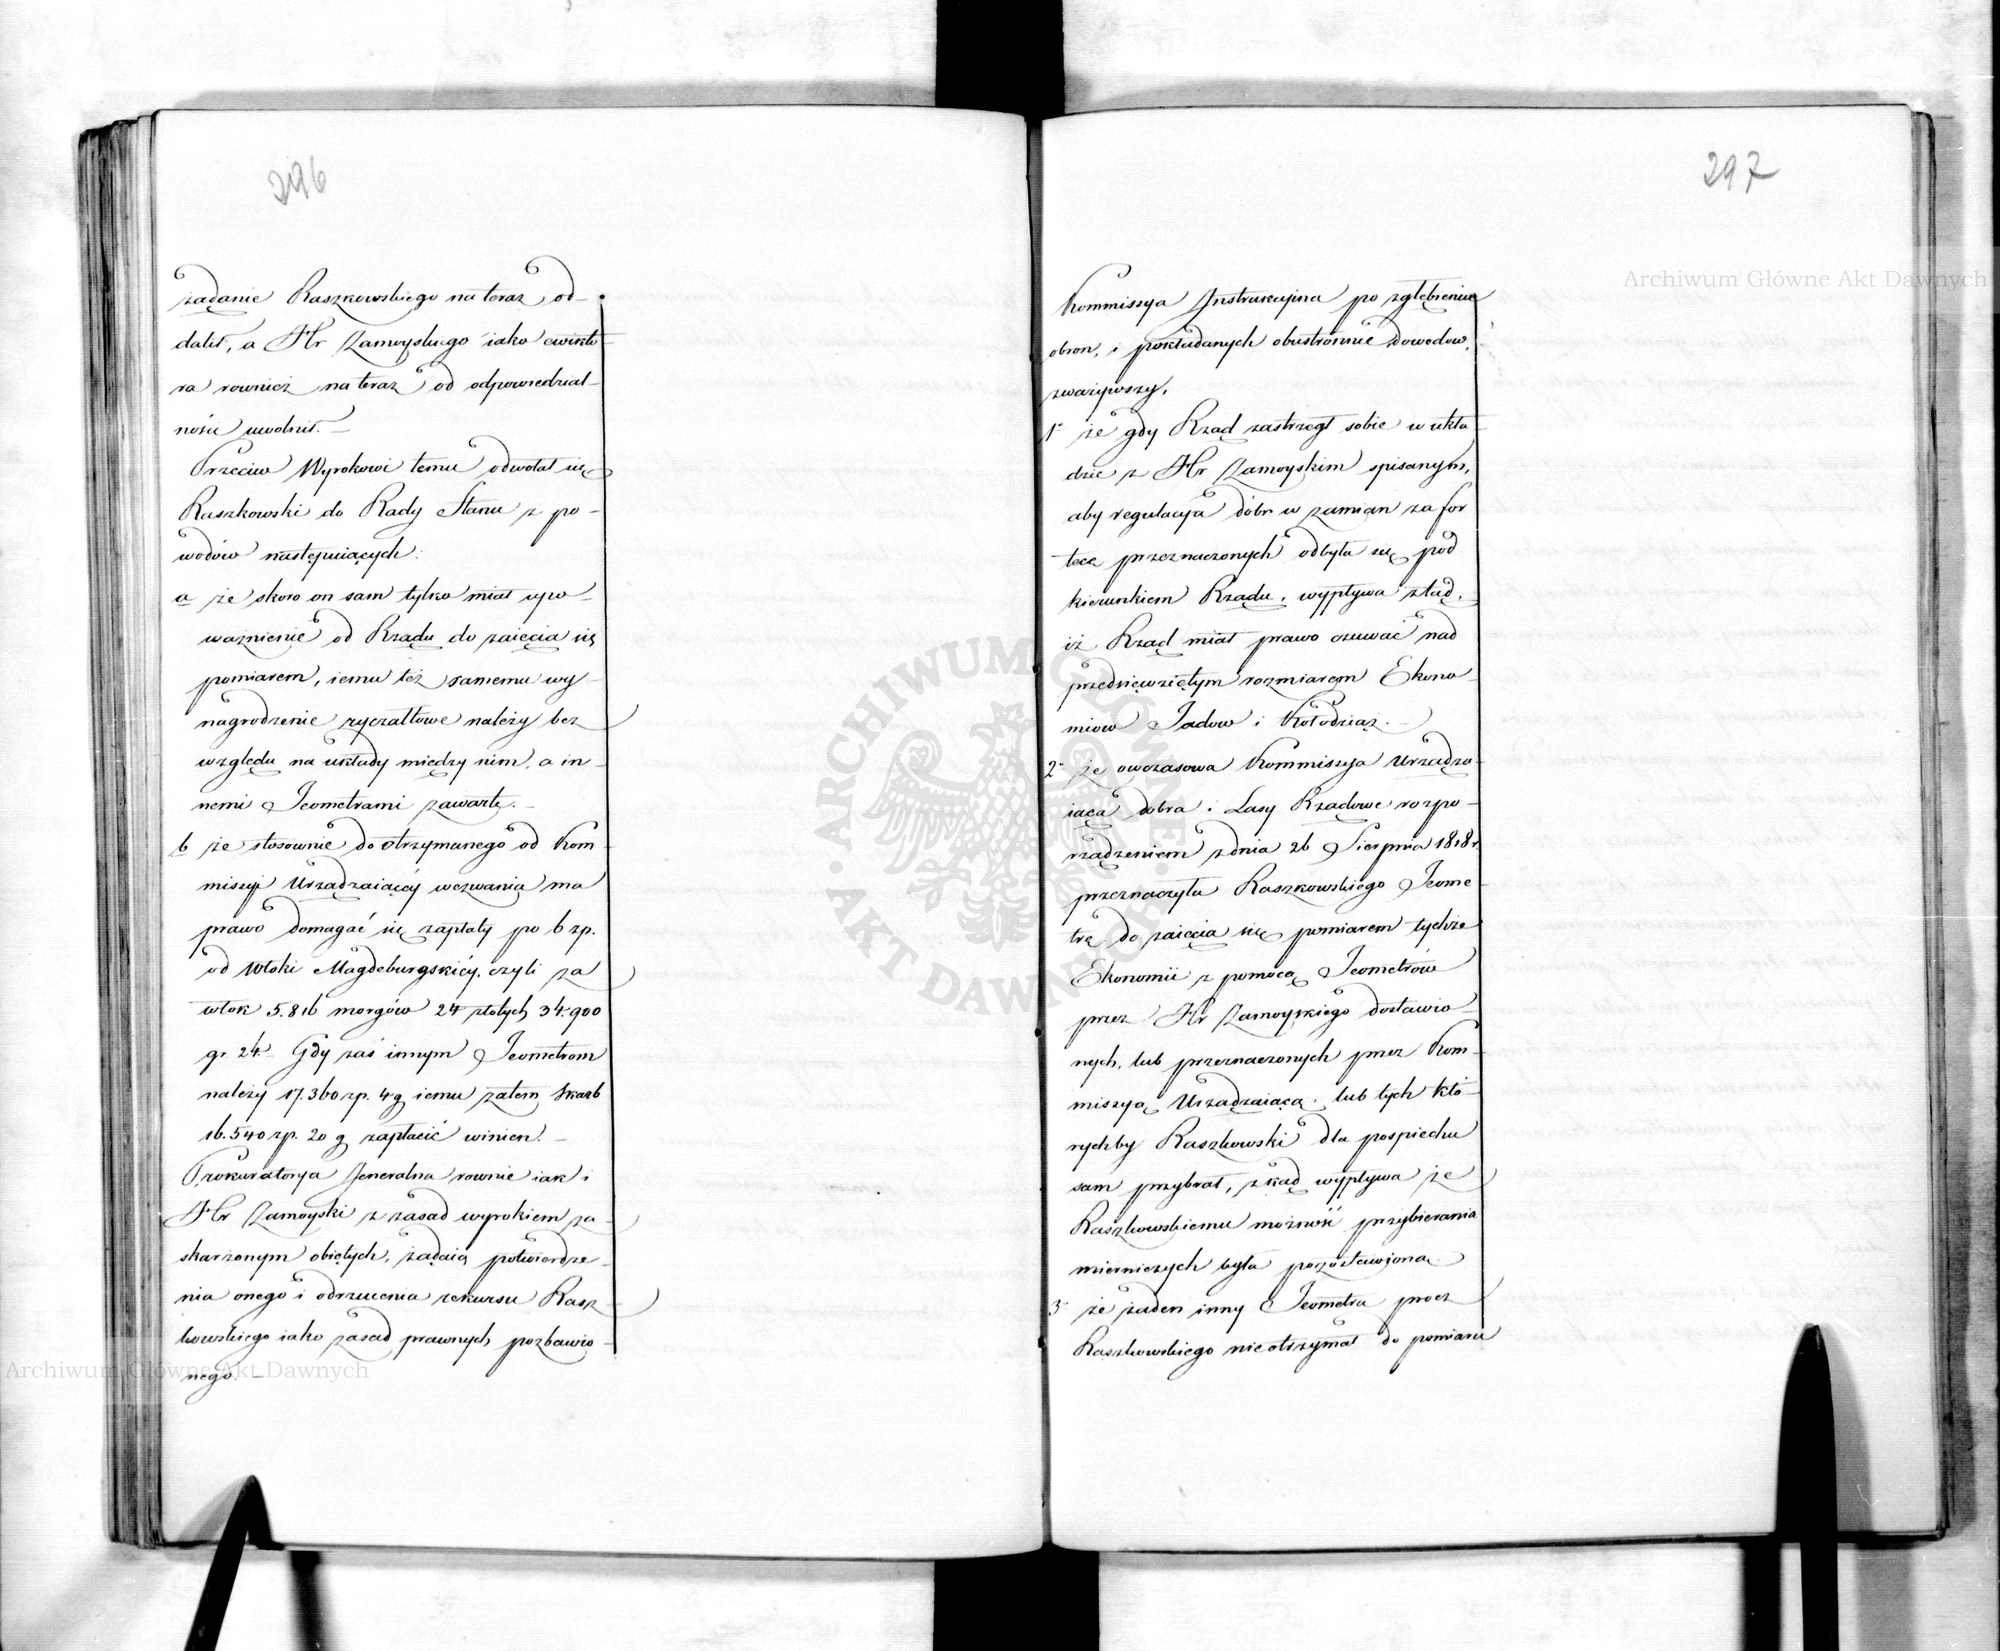 296
żądanie Raszkowskiego na teraz od-
dalił, a Hr Zamoyskiego iako ewikto-
ra rownież na teraz od odpowiedzial-
ności uwolnił. —
Przeciw Wyrokowi temu odwołał się
Raszkowski do Rady Stanu z po-
wodów następuiących:
a że skoro on sam tylko miał upo-
ważnienie od Rządu do zaięcia się
pomiarem, iemu też samemu wy-
nagrodzenie ryczałtowe należy bez
względu na układy między nim, a in-
nemi Jeometrami zawarte. —
b że stosownie do otrzymanego od Kom-
missyi Urządzaiącéy wezwania ma
prawo domagać się zapłaty po 6 zp.
od Włoki Magdeburgskiéy, czyli za
włok 5.816 morgów 24 złotych 34.900
gr. 24. Gdy zaś innym Jeometrom
należy 17.360 zp. 4 g iemu zatem Skarb
16.540 zp. 20 g zapłacić winien. —
Prokuratorya Jeneralna rownie iak i
Hr Zamoyski z zasad wyrokiem za-
skarżonym obiętych, żądaią potwierdze-
nia onego i odrzucenia rekursu Rasz-
kowskiego iako zasad prawnych pozbawio-
nego. —
297
Kommissya Instrukcyina po zgłębieniu
obron, i pokładanych obustronnie dowodow,
zważywszy,
1° że gdy Rząd zastrzegł sobie w ukła-
dzie z Hr Zamoyskim spisanym,
aby regulacya dóbr w zamian za for-
tecę przeznaczonych odbyła się pod
kierunkiem Rządu, wypływa ztąd,
iż Rząd miał prawo czuwać nad
przedsięwziętym rozmiarem Ekono-
miow Jadow i Kołodziąż. —
2° że owczasowa Kommissya Urządza-
iąca dobra i Lasy Rządowe rozpo-
rządzeniem z dnia 26 Sierpnia 1818 r.
przeznaczyła Raszkowskiego Jeome-
trę do zaięcia się pomiarem tychże
Ekonomii z pomocą Jeometrów
przez Hr Zamoyskiego dostawio-
nych, lub przeznaczonych przez Kom-
missyą Urządzaiącą, lub tych któ-
rychby Raszkowski dla pospiechu
sam przybrał, zkąd wypływa że
Raszkowskiemu możność przybierania
mierniczych była pozostawiona.
3° że żaden inny Jeometra procz
Raszkowskiego nie otrzymał do pomiaru
Archiwum Główne Akt Dawnych
Archiwum Główne Akt Dawnych
ARCHIWUM GŁÓWNE AKT DAWNYCH